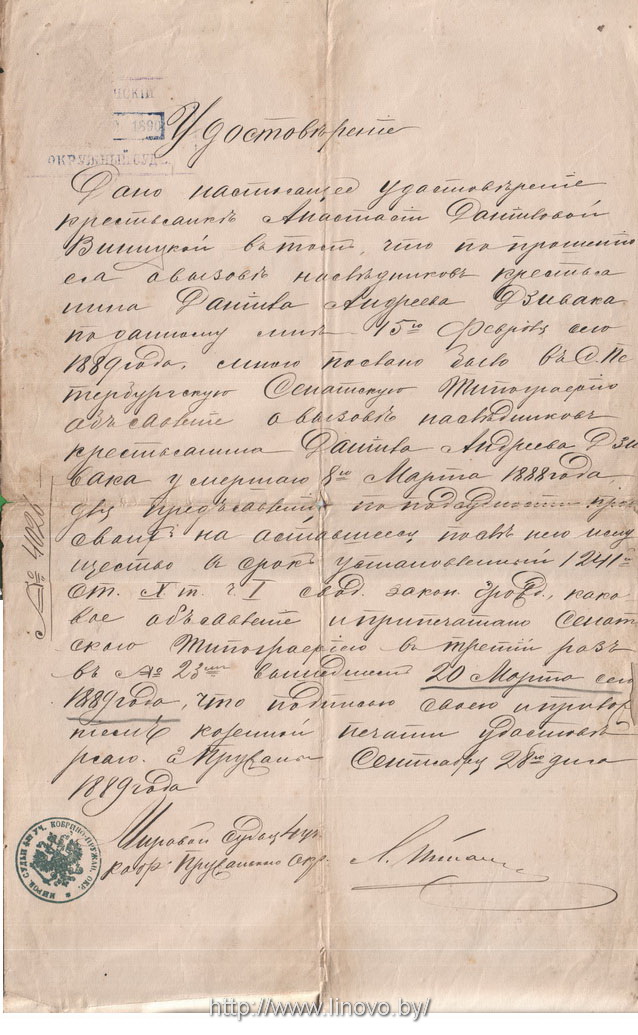 НСКІЙ
1890
ОКРУЖНЫЙ СУДЪ
Удостовѣреніе
Дано настоящее удостовѣреніе
крестьянкѣ Анастасіи Даниловой
Виницкой въ томъ, что по прошенію
ея о вызовѣ наслѣдниковъ крестья
нина Данила Андреева Дзивака
поданному мнѣ 15го Февраля сего
1889 года, мною послано было въ С. Пе
тербургскую Сенатскую Типографію
объявленіе о вызовѣ наслѣдниковъ
крестьянина Данила Андреева Дзи
вака умершаго 8го Марта 1888 года,
для предъявленія по подсудности правъ
своихъ на оставшееся послѣ него иму
щество въ срокъ установленный 1241ю
ст. X т. ч. I свод. закон. Гражд., како
вое объявленіе и припечатано Сенат
скою Типографіею въ третій разъ
въ № 23мъ вышедшемъ 20 Марта сего
1889 года, что подписью своею и прило
женіемъ казенной печати удостовѣ
ряю. г. Пружаны Сентября 28го дня
1889 года
№ 4020
Мировой Судья 4 уч.
Кобр. Пружанскаго Окр.
МИРОВ. СУДЬИ 4го УЧ. КОБРИНО-ПРУЖАН. ОКР.
http://www.linovo.by/